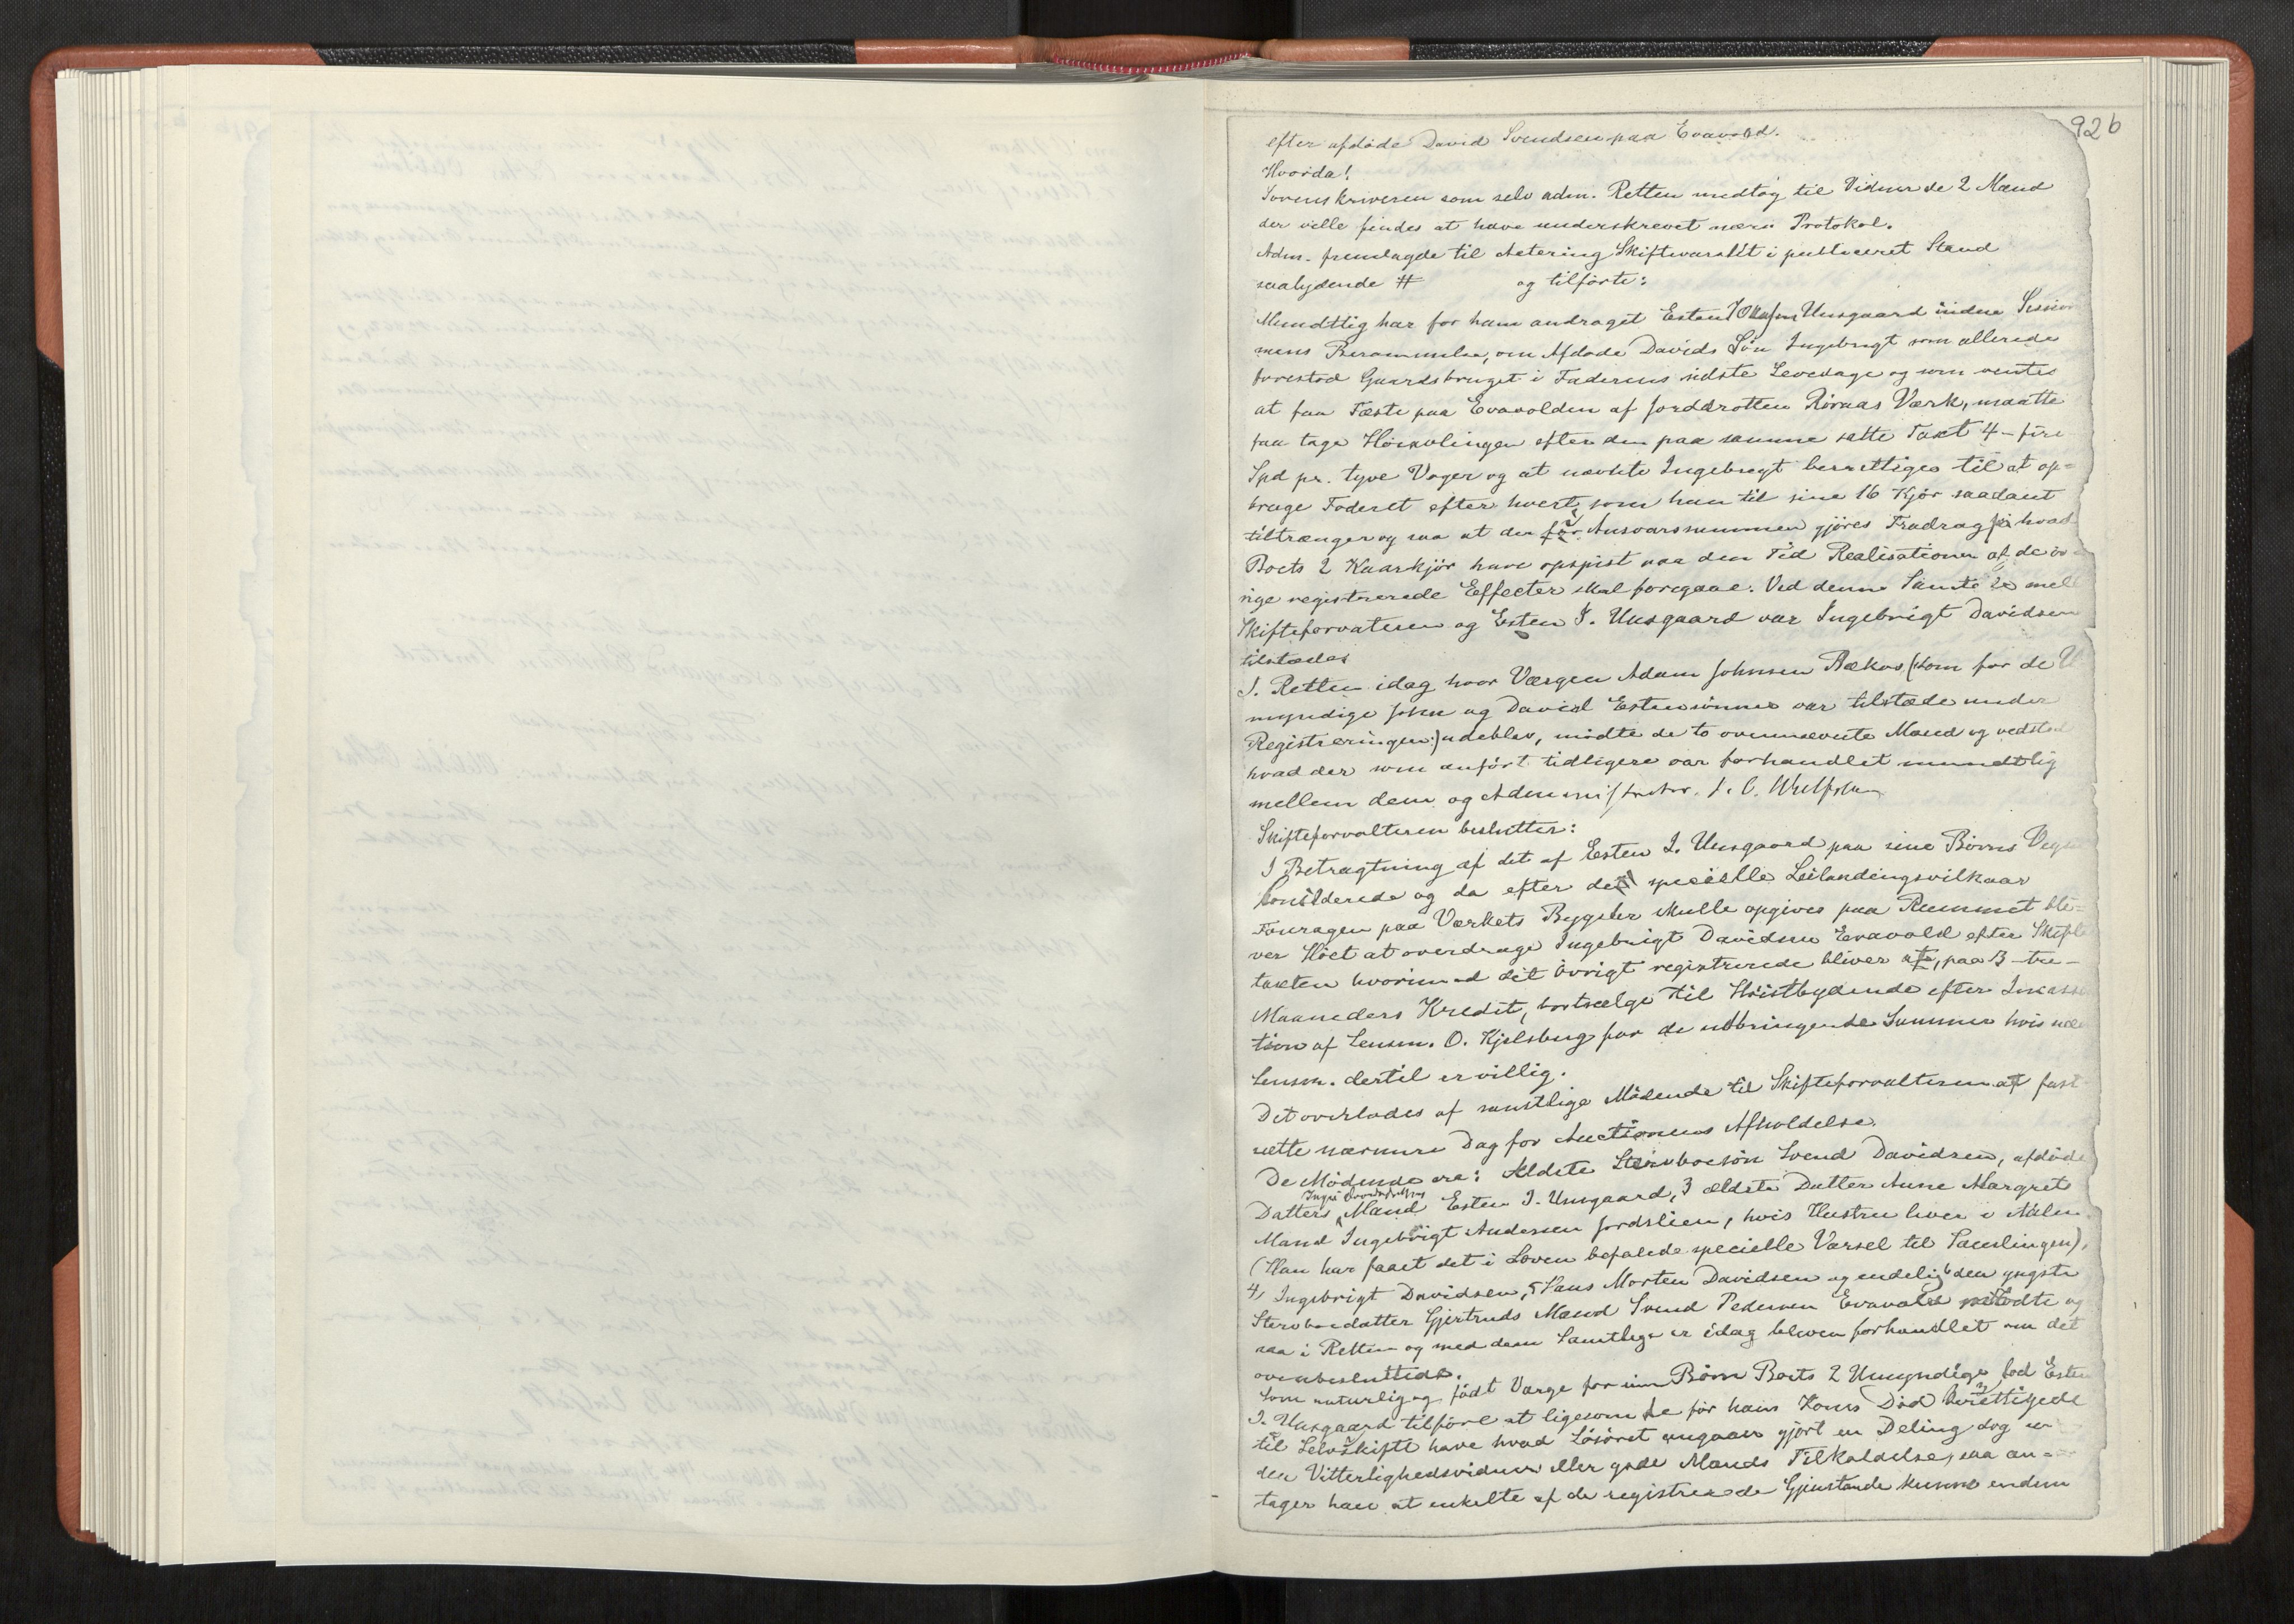 92b
efter afdøde David Svendsen paa Evavold.
Hvorda!
Sorenskriveren som selv adm. Retten medtog til Vidner de 2 Mænd
der ville findes at have underskrevet nærv. Protokol.
Adm. fremlagde til Actering Skiftevarslet i publiceret Stand
saalydende # og tilførte:
Mundtlig har for ham andraget Esten Unsgaard inden Sessio
nens Berammelse, om Afdøde Davids Søn Ingebrigt som allerede
forestod Gaardsbruget i Faderens sidste Levedage og som ventes
at faa Fæste paa Evavolden af Jorddrotten Røraas Værk, maatte
faa tage Høiavlingen efter den paa samme satte Taxt 4 - fire
Spd pr. tyve Voger og at nævnte Ingebrigt berettiges til at op-
bruge Foderet efter hvert, som han til sine 16 Kjør saadant
tiltrænger og saa at der i Ansvarssummen gjøres Fradrag for hvad
Boets 2 Kaarkjør have opspist naa den Tid Realisationen af de øv
rige registrerede Effecter skal foregaae. Ved denne Samtale mell
Skifteforvalteren og Esten I. Unsgaard var Ingebrigt Davidsen
tilstædes
I Retten idag hvor Værgen Adam Johnsen Bækos (som for de U
myndige John og David Estensønner var tilstæde under
Registreringen) udeblev, mødte de to ovennævnte Mænd og vedstod
hvad der som anført tidligere var forhandlet mundtlig
mellem dem og Administrator. I. C. Wulfsberg
Skifteforvalteren beslutter:
I Betragtning af det af Esten I. Unsgaard paa sine Børns Vegne
Considerede og da efter de specielle Leilændingsvilkaar
Fouragen paa Værkets Bygsler skulle opgives paa Rummet bli-
ver Høet at overdrage Ingebrigt Davidsen Evavold efter Skifte
taxten hvorimod det øvrigt registrerede bliver at, paa 3 - tre -
Maaneders Kredit, bortsælge til Høistbydende efter Incassa
tion af Lensm. O. Kjelsberg for de udbringende Summer hvis næv
Lensm. dertil er villig.
Det overlades af samtlige Mødende til Skifteforvalteren at fast
sætte nærmere Dag for Auctionens Afholdelse.
De Mødende ere: Ældste Stervboesøn Svend Davidsen, afdøde
Datters Mand Esten I. Unsgaard, 3 ældste Datter Anne Margret
Mand Ingebrigt Andersen Jordslien, hvis Hustru lever i Aalen
(Han har faaet det i Loven befalede specielle Varsel til Samlingen),
4, Ingebrigt Davidsen, 5 Hans Morten Davidsen og endelig 6 den yngste
Stervboedatter Gjertruds Mand Svend Pedersen Evavold mødte og
saa i Retten og med dem Samtlige er idag bleven forhandlet om det
ovenbesluttede.
Som naturlig og født Værge for sine Børn Boets 2 Umyndige, lod Esten
I. Unsgaard tilføre at ligesom de før hans Kones Død berettigede
til Selvskifte have hvad Løsøret angaaer gjort en Deling dog u
den Vitterlighedsvidner eller gode Mænds Tilkaldelse, saa an-
tager han at enkelte af de registrerede Gjenstande kunne endnu